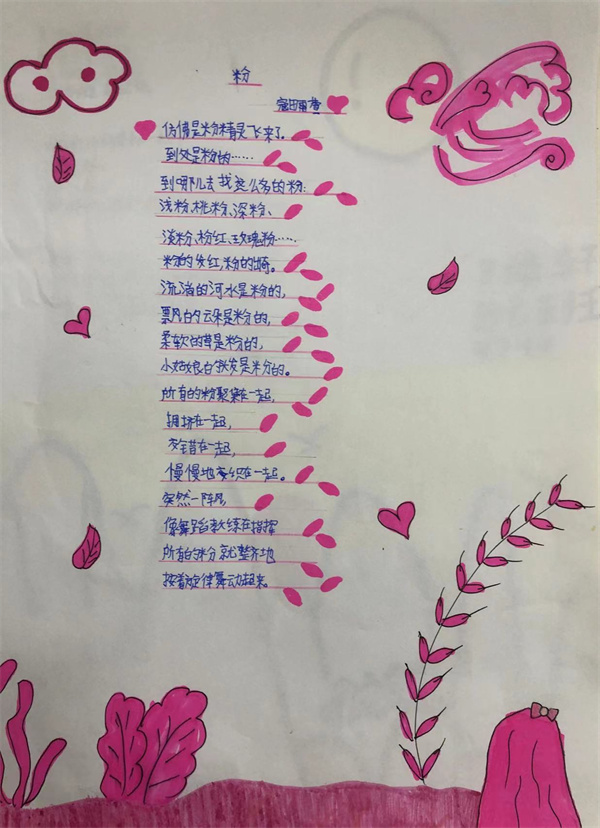 粉
仿佛是粉精灵飞来了。
到处是粉的……
到哪儿去找这么多的粉:
浅粉、桃粉、深粉、
淡粉、粉红、玫瑰粉……
粉的发红,粉的
流淌的河水是粉的,
飘的云朵是粉的,
柔软的草是粉的,
小姑娘的头发是粉的。
所有的粉聚集在一起,
拥挤在一起,
交错在一起,
慢慢地交织在一起。
突然一阵风
像舞蹈教练在指挥
所有的粉就整齐地
按着旋律舞动起来。